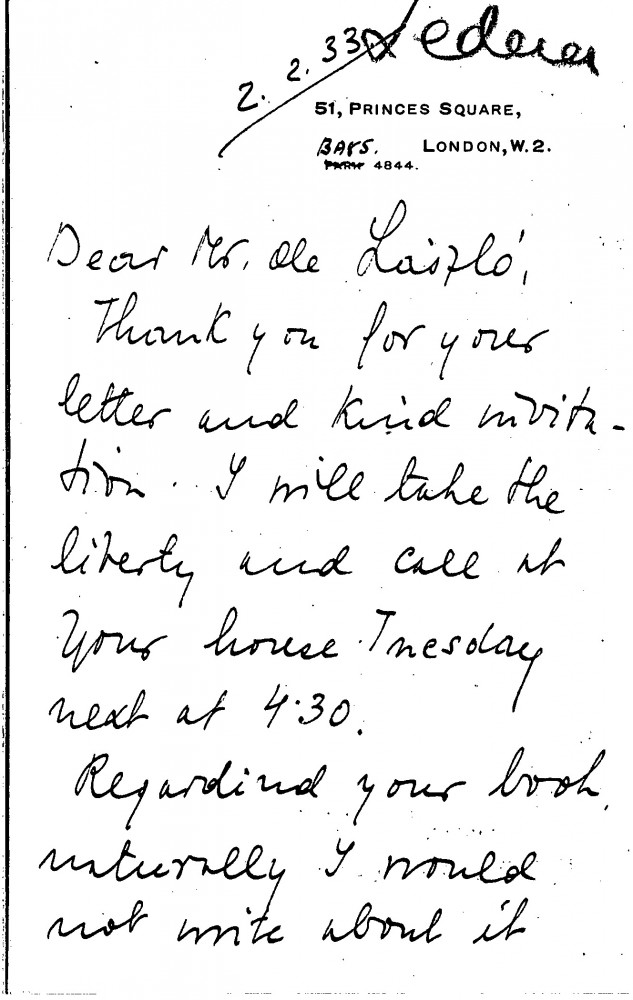 Lederer
2. 2. 33
51, PRINCES SQUARE,
BAYS. LONDON, W. 2.
PARK 4844.
Dear Mr. de László,
Thank you for your
letter and kind invita-
tion. I will take the
liberty and call at
your house Tuesday
next at 4.30.
Regardind your book,
naturally I would
not write about it